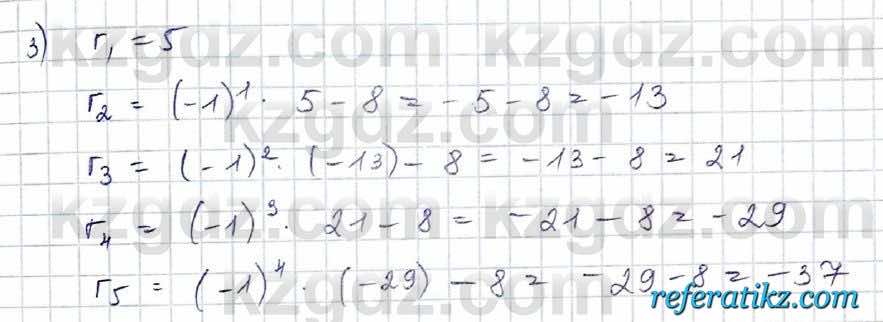 3) r₁ = 5
r₂ = (-1)¹ · 5 - 8 = -5 - 8 = -13
r₃ = (-1)² · (-13) - 8 = -13 - 8 = 21
r₄ = (-1)³ · 21 - 8 = -21 - 8 = -29
r₅ = (-1)⁴ · (-29) - 8 = -29 - 8 = -37
kzgdz.com kzgdz.com
kzgdz.com
kzgdz.com kzgdz.com
kzgdz.com
referatikz.com